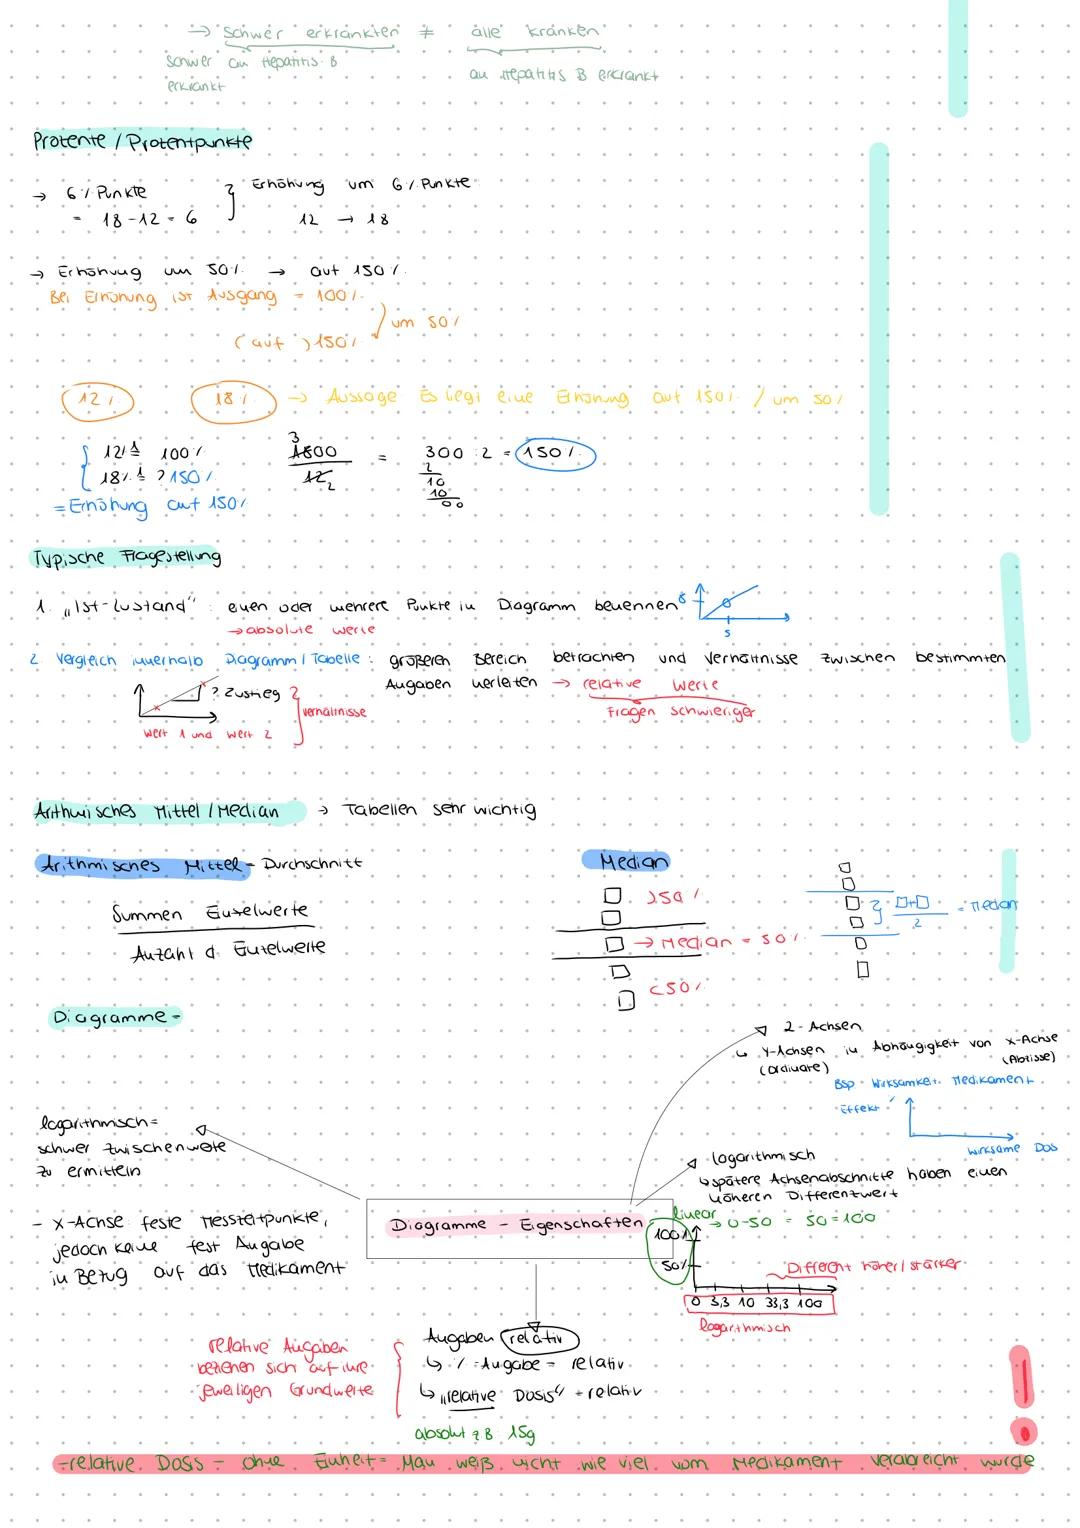 → schwer erkrankten ≠ alle kranken
schwer an Hepatitis B erkrankt
an Hepatitis B erkrankt
Prozente / Prozentpunkte
→ 6% Punkte } Erhöhung um 6% Punkte
= 18-12 = 6 12 → 18
→ Erhöhung um 50% → auf 150%
Bei Erhöhung ist Ausgang = 100%
um 50%
(auf) 150%
12% 18% → Aussage Es liegt eine Erhöhung auf 150% / um 50%
12% ≙ 100% 3 1800 = 300 : 2 = 150%
18% ≙ ? 150% 12 2 2
10
10
00
= Erhöhung auf 150%
Typische Fragestellung
1. „Ist-Zustand" : einen oder mehrere Punkte in Diagramm benennen 8
→ absolute werte 5
2. Vergleich innerhalb Diagramm / Tabelle : größeren Bereich betrachten und Verhältnisse zwischen bestimmten
? Zustieg } Verhältnisse Angaben herleiten → relative Werte
Fragen schwieriger
Wert 1 und Wert 2
Arithmisches Mittel / Median → Tabellen sehr wichtig
Arithmisches Mittel = Durchschnitt
Summen Einzelwerte
Anzahl d. Einzelwerte
Median
>50%
→ Median = 50%
<50%
□+□ = Median
2
Diagramme -
2 - Achsen
↳ Y-Achsen in Abhängigkeit von X-Achse
(Ordinate) (Abzisse)
Bsp. Wirksamkeit Medikament
Effekt
wirksame Dos
logarithmisch =
schwer zwischenwerte
zu ermitteln
logarithmisch
↳ spätere Achsenabschnitte haben einen
höheren Differenzwert
- X-Achse feste Messzeitpunkte,
jedoch keine fest Angabe
in Bezug auf das Medikament
Diagramme - Eigenschaften
linear
→ 0-50 = 50=100
100%
50%
Different höher / stärker
0 3,3 10 33,3 100
logarithmisch
Angaben relativ
↳ % -Angabe = relativ
↳ „relative Dosis" = relativ
relative Angaben
beziehen sich auf ihre
jeweiligen Grundwerte
absolut z B. 15g
!
-relative Dosis = ohne Einheit = Man weiß nicht wie viel vom Medikament verabreicht wurde